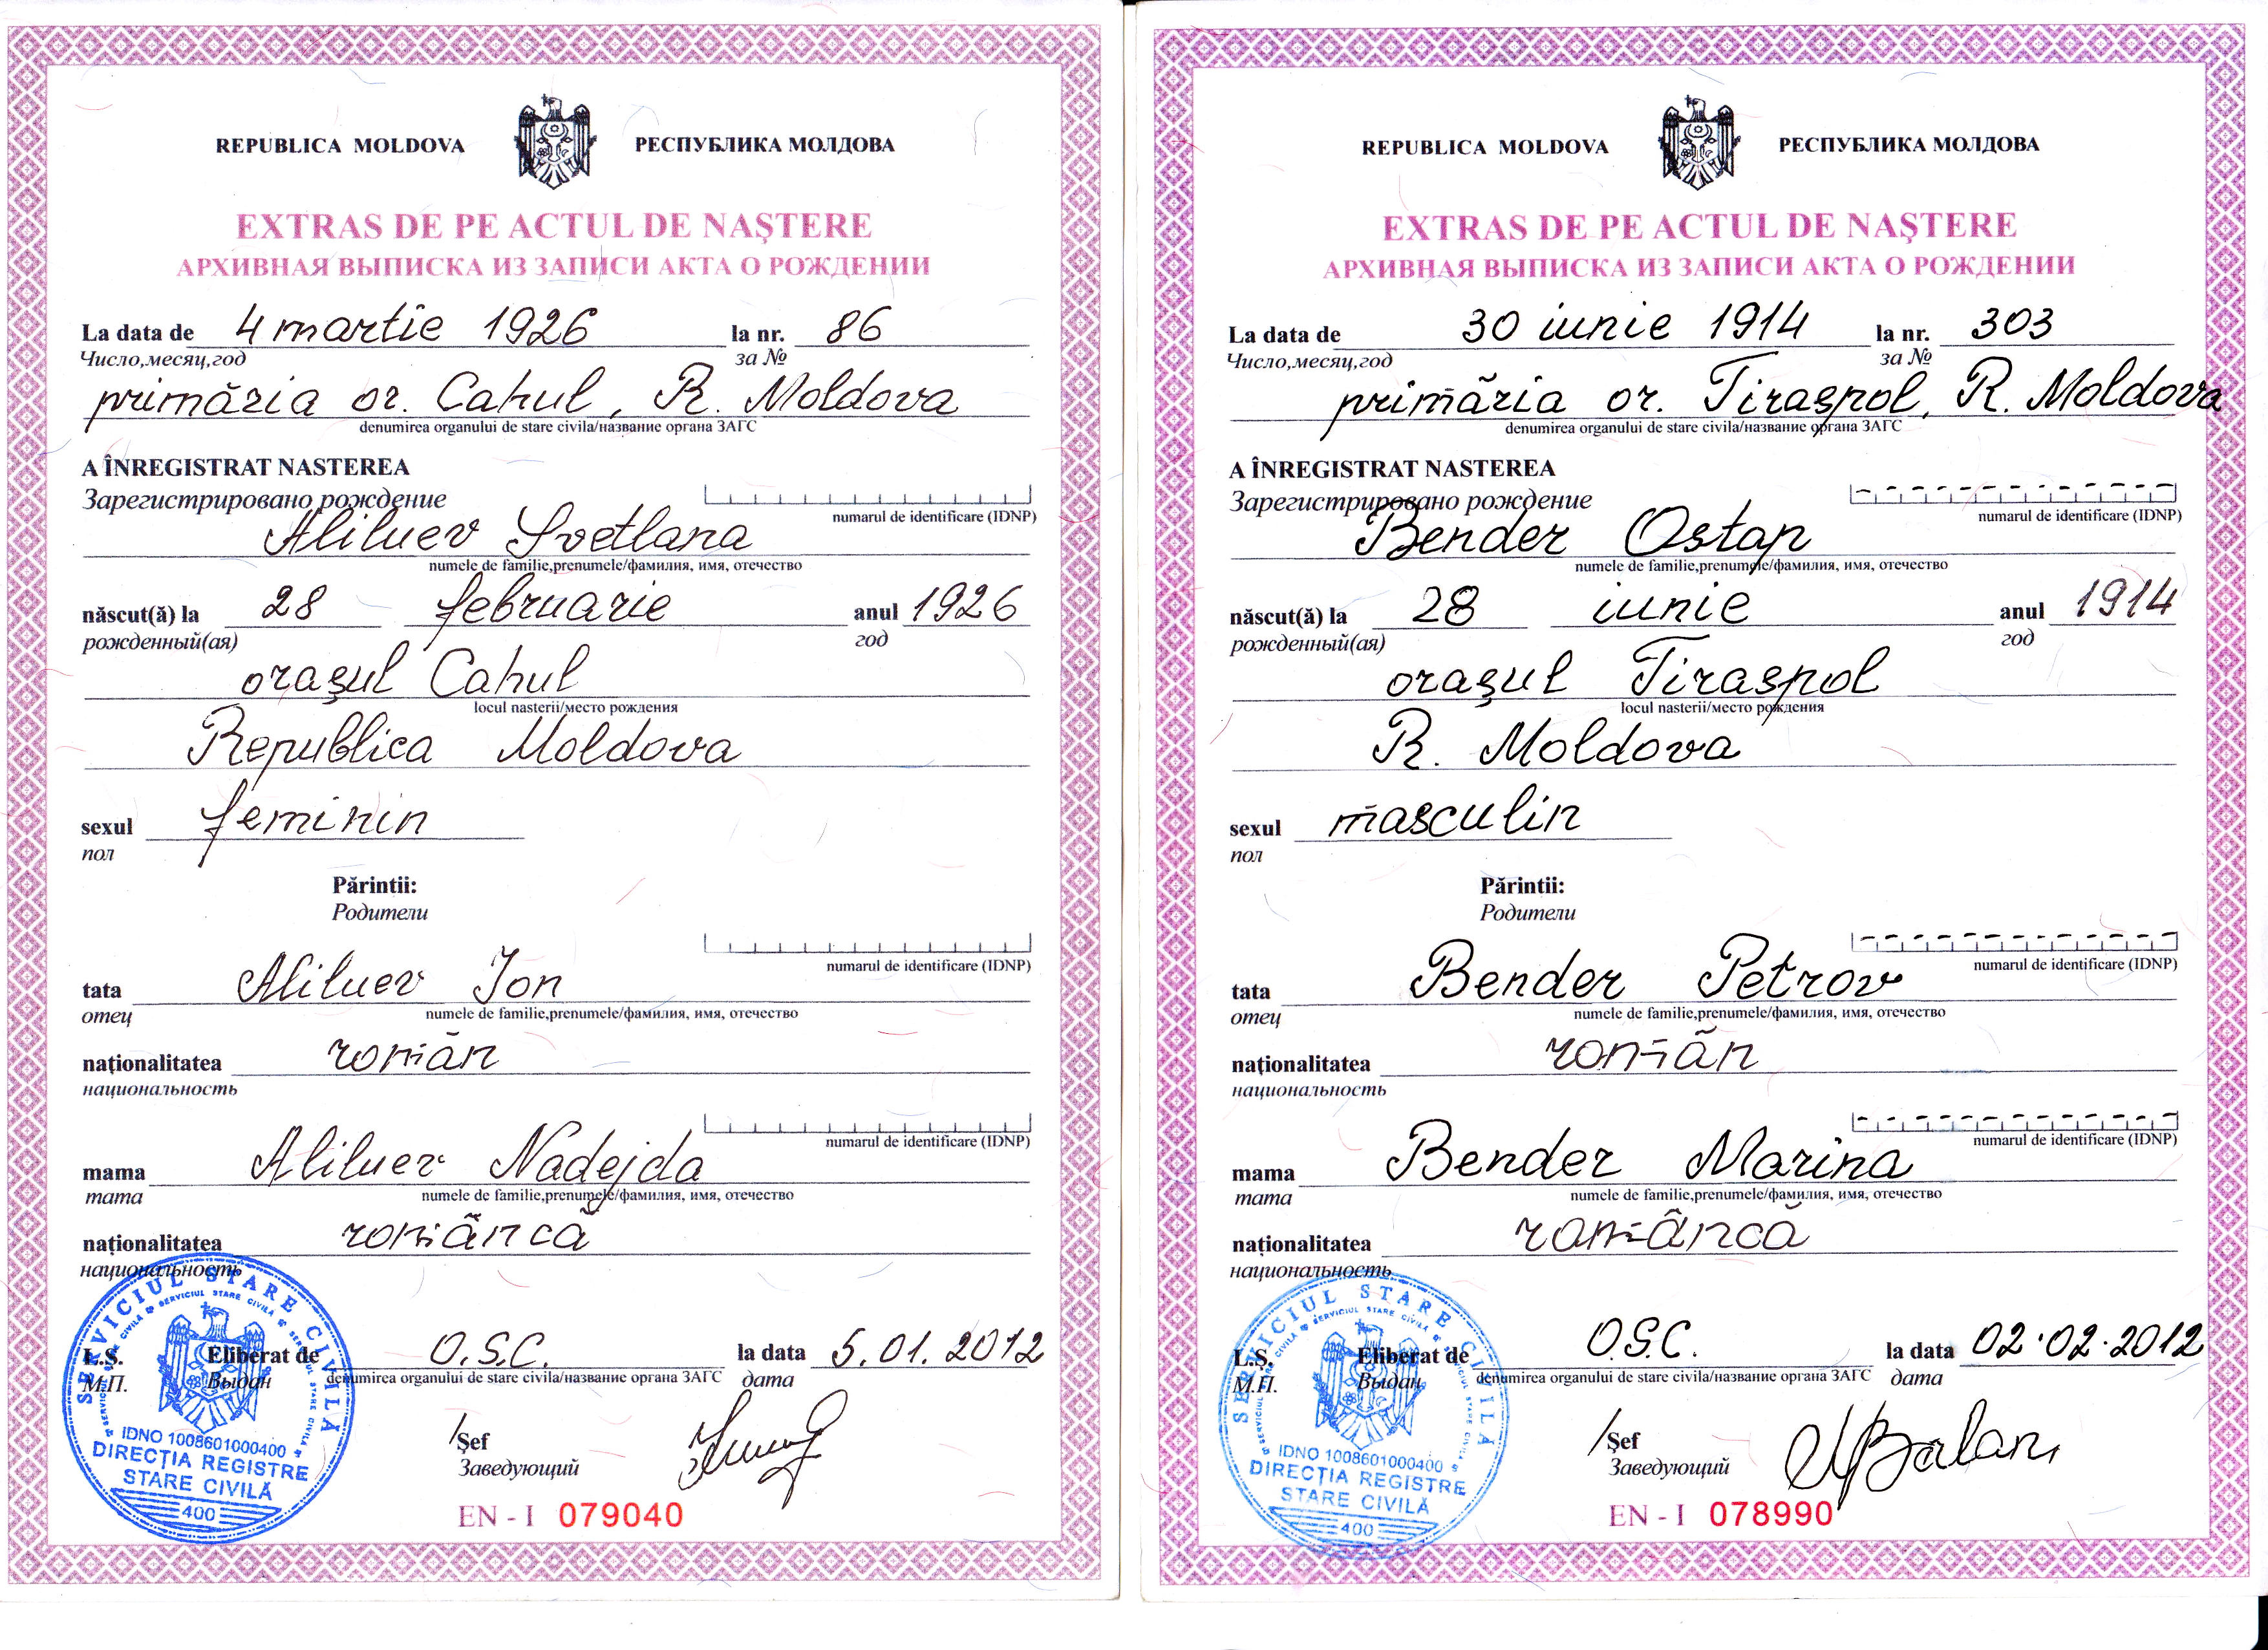 REPUBLICA MOLDOVA РЕСПУБЛИКА МОЛДОВА
EXTRAS DE PE ACTUL DE NAŞTERE
АРХИВНАЯ ВЫПИСКА ИЗ ЗАПИСИ АКТА О РОЖДЕНИИ
La data de 4 martie 1926 la nr. 86
Число,месяц,год за №
primăria or. Cahul, R. Moldova
denumirea organului de stare civila/название органа ЗАГС
A ÎNREGISTRAT NASTEREA
Зарегистрировано рождение
numarul de identificare (IDNP)
Aliluev Svetlana
numele de familie,prenumele/фамилия, имя, отечество
născut(ă) la 28 februarie anul 1926
рожденный(ая) год
oraşul Cahul
locul nasterii/место рождения
Republica Moldova
sexul feminin
пол
Părintii:
Родители
numarul de identificare (IDNP)
tata Aliluev Ion
отец numele de familie,prenumele/фамилия, имя, отечество
naţionalitatea român
национальность
numarul de identificare (IDNP)
mama Aliluev Nadejda
mama numele de familie,prenumele/фамилия, имя, отечество
naţionalitatea româncă
национальность
SERVICIUL STARE CIVILĂ
L.Ş. Eliberat de O.S.C. la data 5.01.2012
М.П. Выдан denumirea organului de stare civila/название органа ЗАГС дата
IDNO 1008601000400
DIRECŢIA REGISTRE
STARE CIVILĂ
400
Şef
Заведующий
EN - I 079040
REPUBLICA MOLDOVA РЕСПУБЛИКА МОЛДОВА
EXTRAS DE PE ACTUL DE NAŞTERE
АРХИВНАЯ ВЫПИСКА ИЗ ЗАПИСИ АКТА О РОЖДЕНИИ
La data de 30 iunie 1914 la nr. 303
Число,месяц,год за №
primăria or. Tiraspol, R. Moldova
denumirea organului de stare civila/название органа ЗАГС
A ÎNREGISTRAT NASTEREA
Зарегистрировано рождение
numarul de identificare (IDNP)
Bender Ostap
numele de familie,prenumele/фамилия, имя, отечество
născut(ă) la 28 iunie anul 1914
рожденный(ая) год
oraşul Tiraspol
locul nasterii/место рождения
R. Moldova
sexul masculin
пол
Părintii:
Родители
numarul de identificare (IDNP)
tata Bender Petrov
отец numele de familie,prenumele/фамилия, имя, отечество
naţionalitatea român
национальность
numarul de identificare (IDNP)
mama Bender Marina
mama numele de familie,prenumele/фамилия, имя, отечество
naţionalitatea româncă
национальность
SERVICIUL STARE CIVILĂ
L.Ş. Eliberat de O.S.C. la data 02.02.2012
М.П. Выдан denumirea organului de stare civila/название органа ЗАГС дата
IDNO 1008601000400
DIRECŢIA REGISTRE
STARE CIVILĂ
400
Şef Balan
Заведующий
EN - I 078990